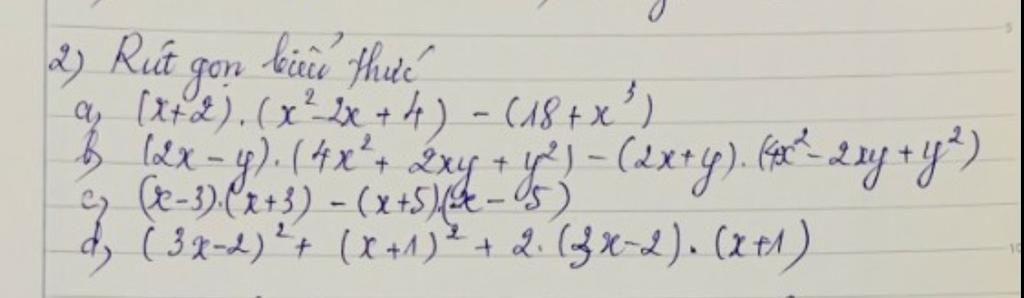 2) Rút gọn biểu thức
a, (x+2).(x²-2x+4) - (18+x³)
b, (2x-y).(4x²+2xy+y²) - (2x+y).(4x²-2xy+y²)
c, (x-3).(x+3) - (x+5)(x-5)
d, (3x-2)² + (x+1)² + 2.(3x-2).(x+1)